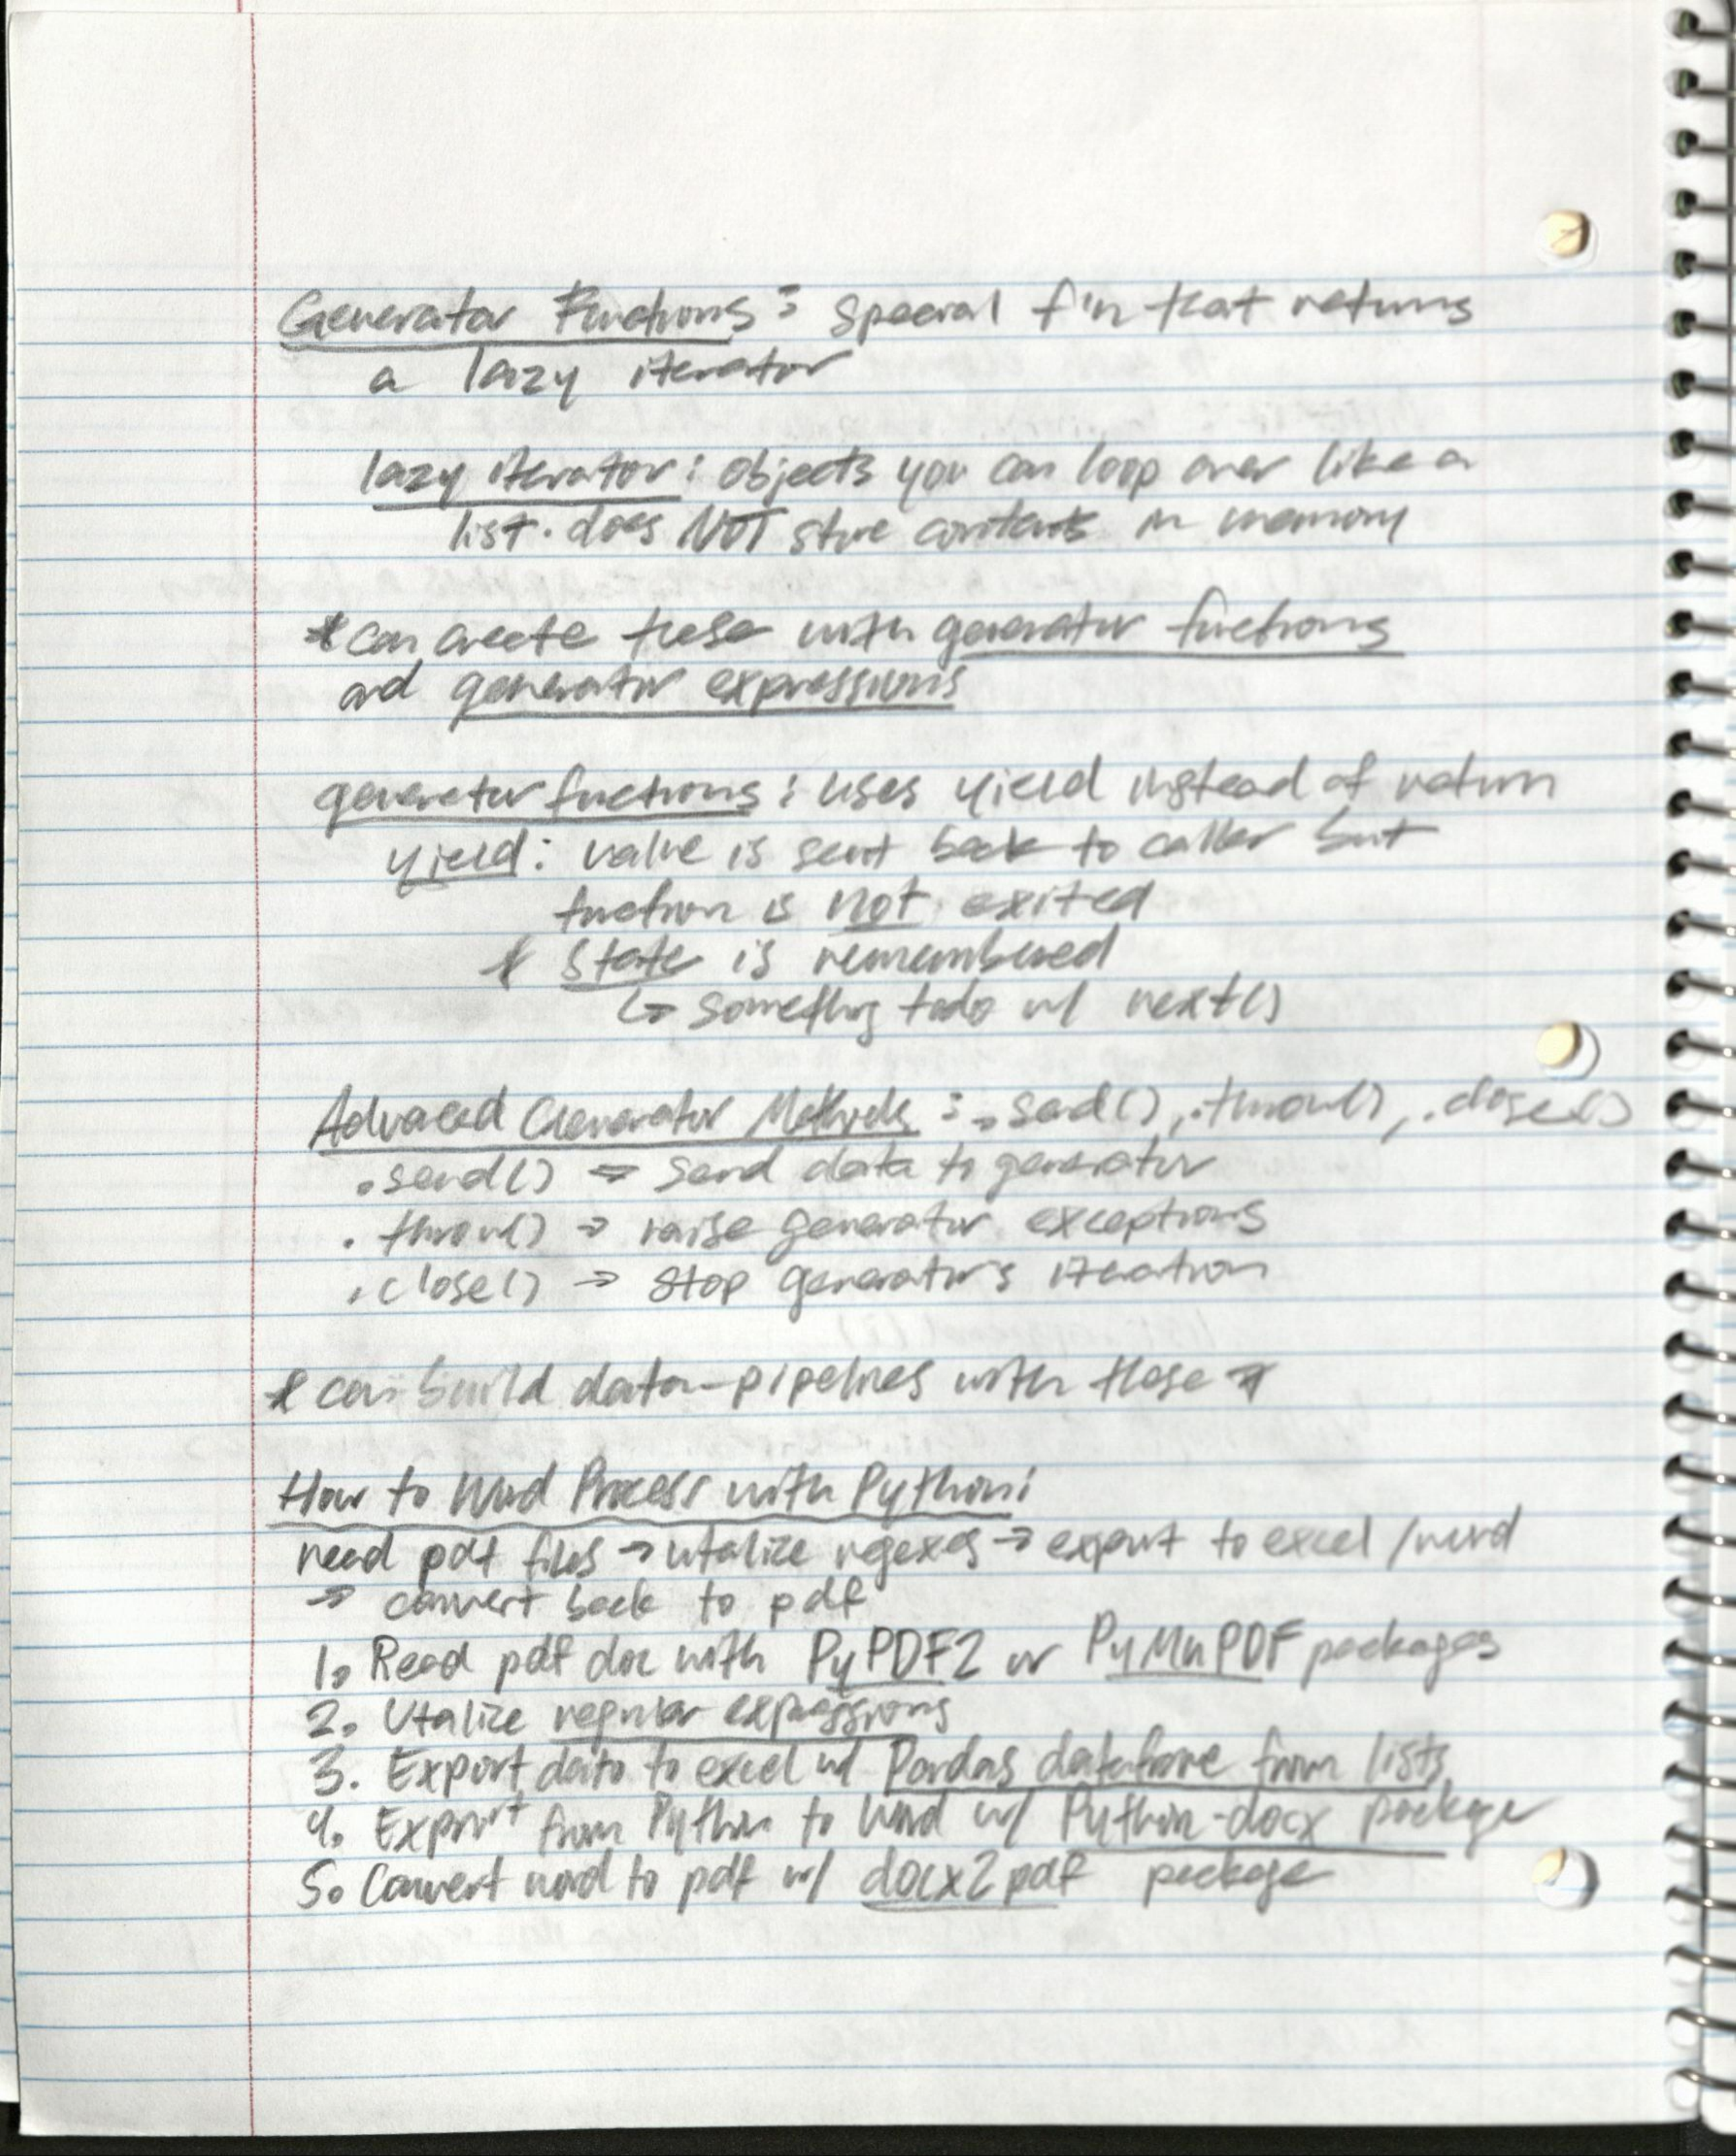 Generator Functions: special f'n that returns
a lazy iterator
lazy iterator: objects you can loop over like a
list. does NOT store contents in memory
*can create these with generator functions
and generator expressions
generator functions: uses yield instead of return
yield: value is sent back to caller but
function is not exited
* state is remembered
↳ something todo w/ next()
Advanced Generator Methods: .send(), .throw(), .close()
.send() → send data to generator
.throw() → raise generator exceptions
.close() → stop generator's iteration
* can build data-pipelines with these *
How to Word Process with Python:
read pdf files → utalize regexes → export to excel/word
→ convert back to pdf
1. Read pdf doc with PyPDF2 or PyMuPDF packages
2. Utalize regular expressions
3. Export data to excel w/ Pandas dataframe from lists
4. Export from Python to Word w/ Python-docx package
5. Convert word to pdf w/ docx2pdf package